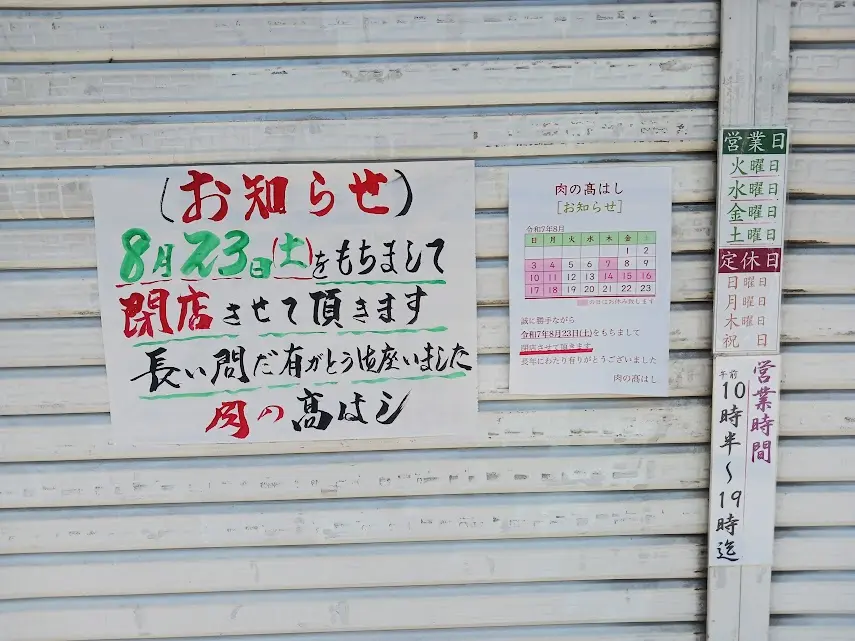 (お知らせ)
8月23日(土)をもちまして
閉店させて頂きます
長い間だ有がとう御座いました
肉の髙はし
肉の髙はし
[お知らせ]
令和7年8月
日 月 火 水 木 金 土
1 2
3 4 5 6 7 8 9
10 11 12 13 14 15 16
17 18 19 20 21 22 23
の日はお休み致します
誠に勝手ながら
令和7年8月23日(土)をもちまして
閉店させて頂きます。
長年にわたり有りがとうございました
肉の髙はし
営業日
火曜日
水曜日
金曜日
土曜日
定休日
日曜日
月曜日
木曜日
祝日
営業時間
午前10時半～19時迄